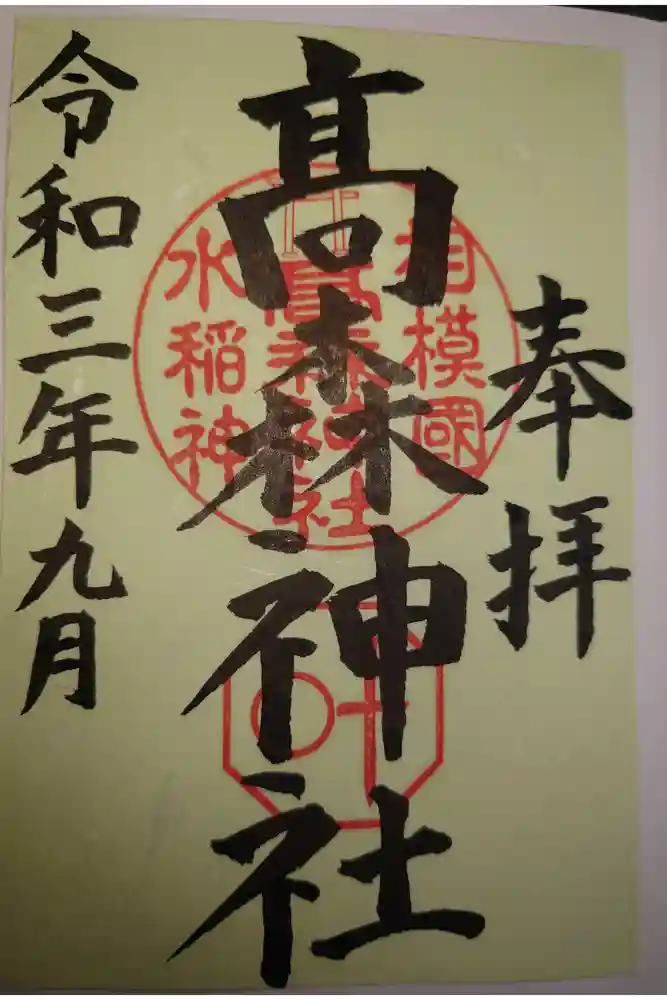 奉拝
相模國
髙森神社
高森神社
水稲神
叶
令和三年九月